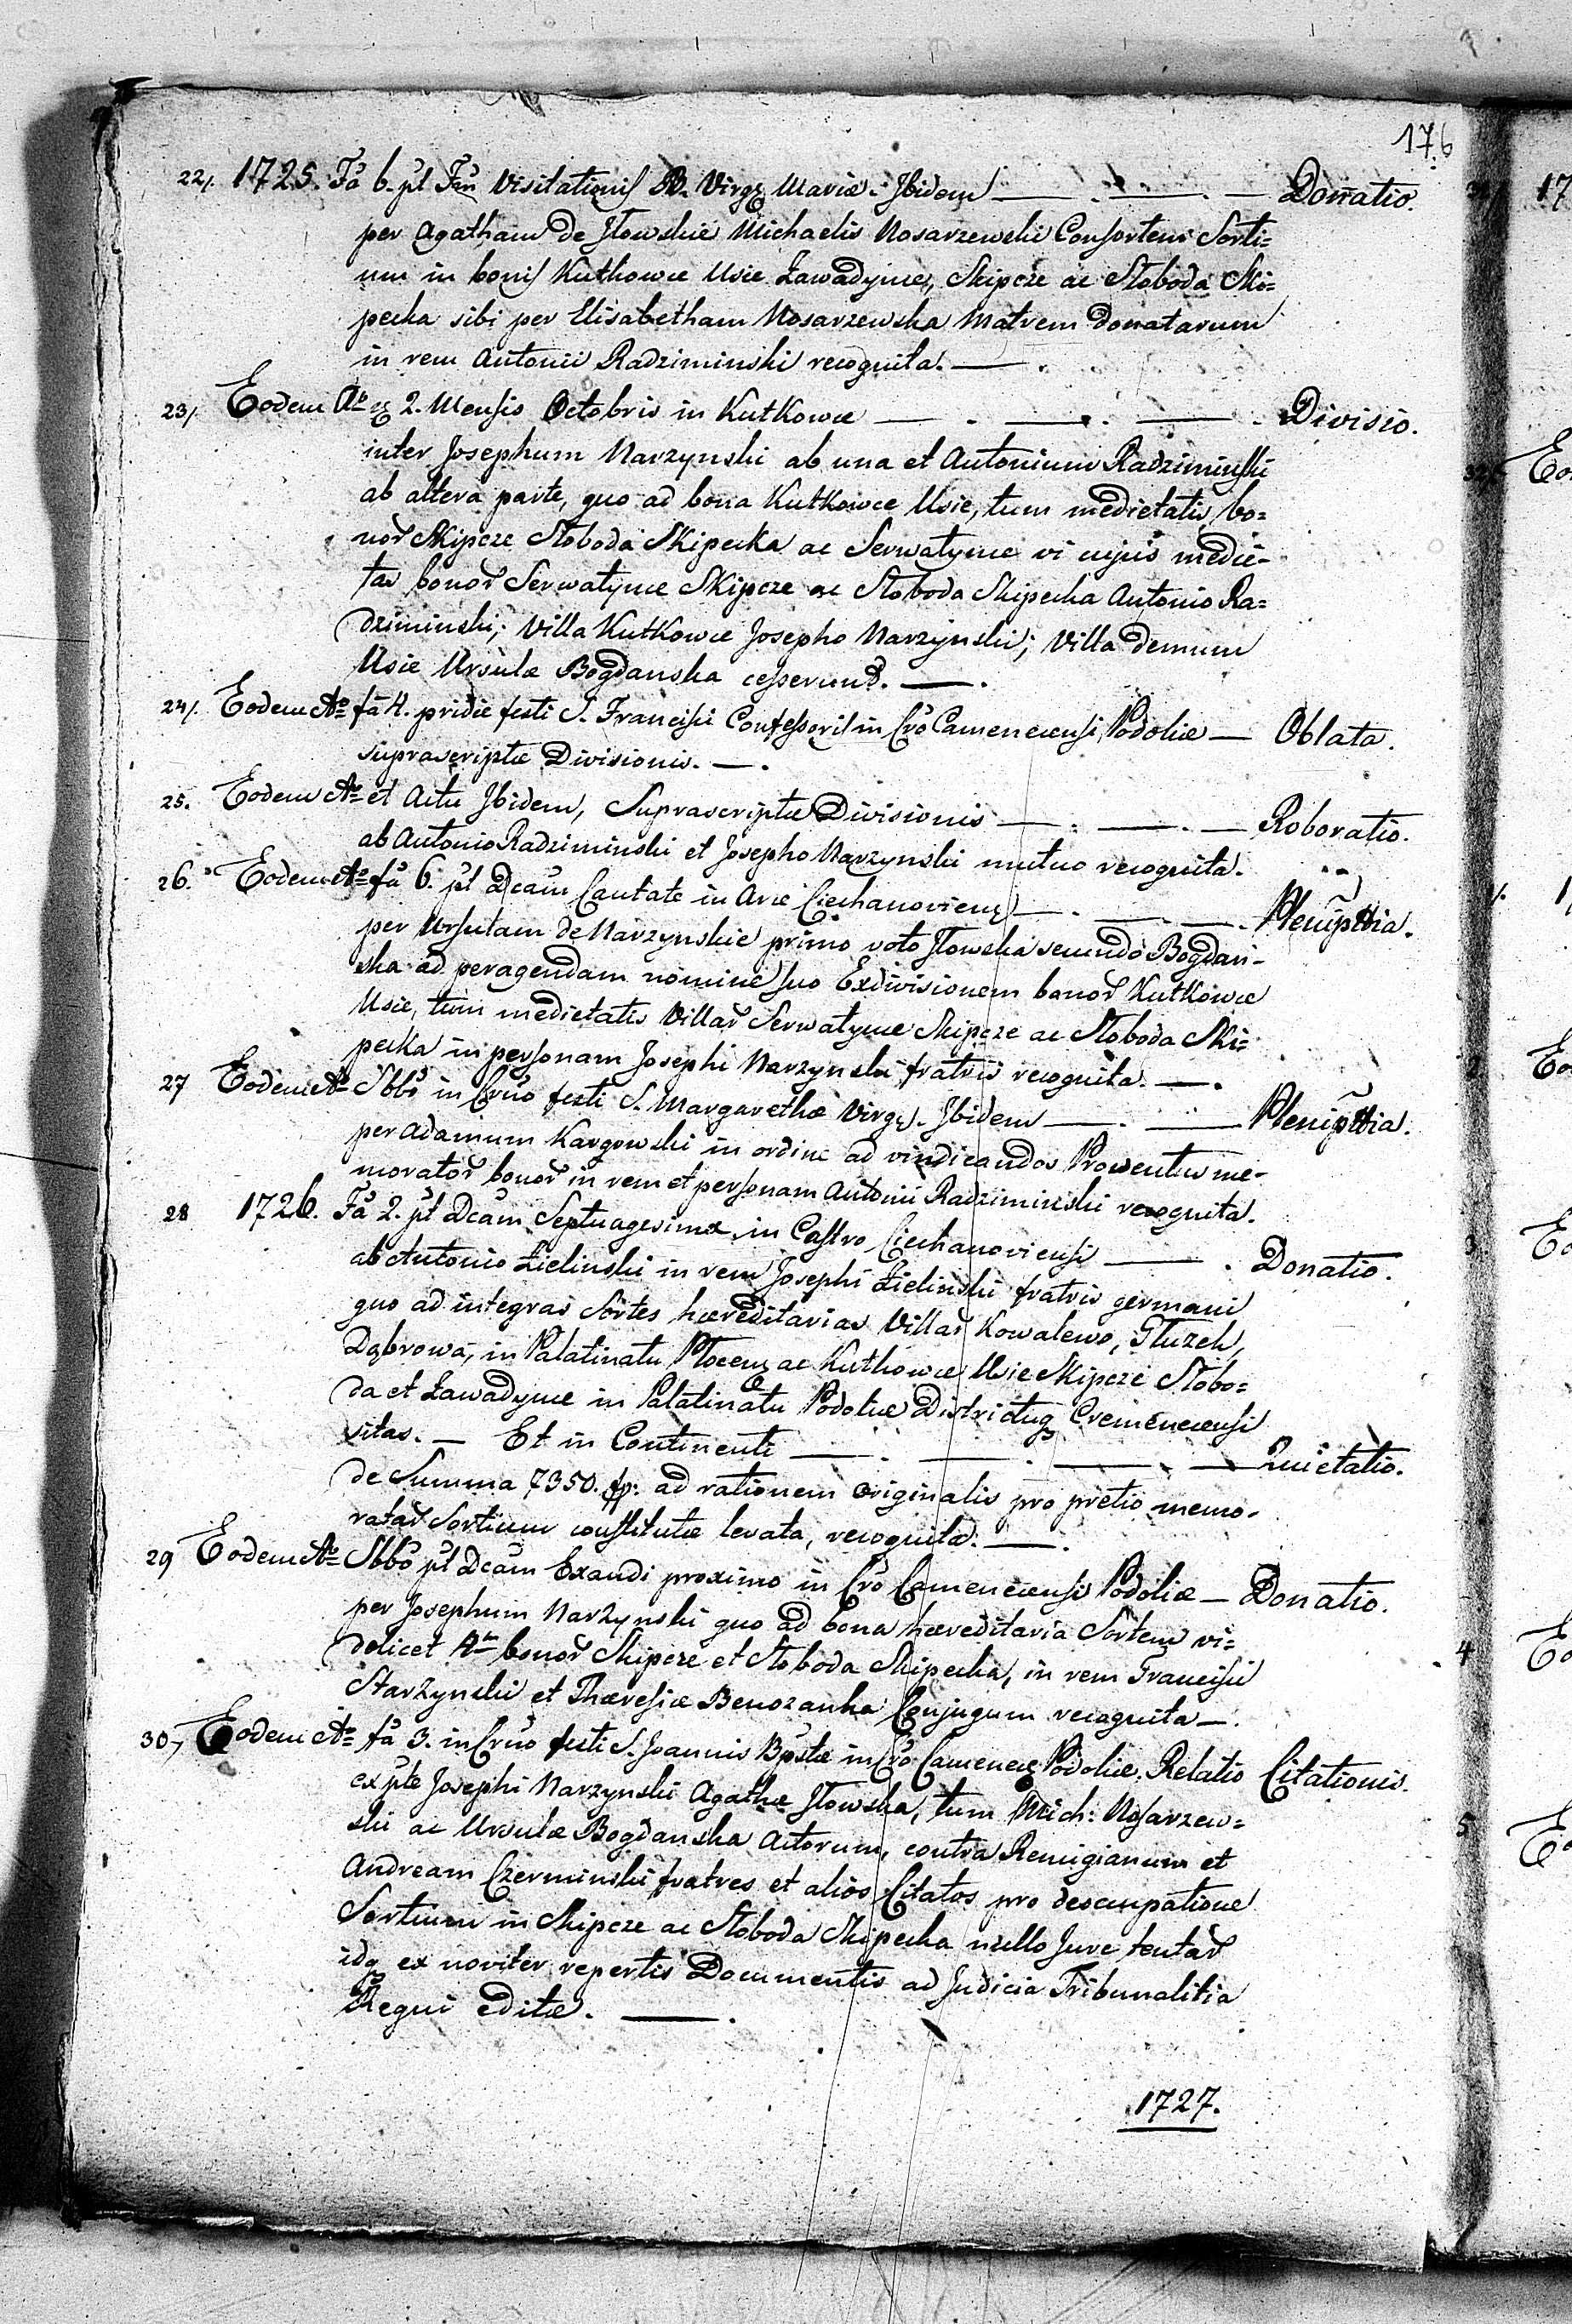 176
22/. 1725. Fã 6. pt Fm Visitationis B. Virgę Mariæ. Ibidem — . — . — Donatio.
per Agatham de Iłowskie Michaelis Nosarzewski Consortem Sorti=
um in bonis Kutkowce Usie Zawadynce, Skipcze ac Słoboda Ski=
pecka sibi per Elisabetham Nosarzewska Matrem donatarum
in rem Antonii Radziminski recognita. — .
23/. Eodem Aº 2. Mensis Octobris in Kutkowce — . — . — . Divisio.
inter Josephum Narzynski ab una et Antonium Radziminski
ab altera parte, quo ad bona Kutkowce Usie, tum medietatis bo=
nor̃ Skipcze Słoboda Skipecka ac Serwatynce vi cujus medie-
tas bonor̃ Serwatynce Skipcze ac Słoboda Skipecka Antonio Ra=
dziminski; Villa Kutkowce Josepho Narzynski; Villa demum
Usie Ursulæ Bogdanska cesserund. — .
24/. Eodem Aº fã 4. pridie festi S. Francisci Confessoris in Crõ Camenecensi Podoliæ — Oblata.
suprascriptæ Divisionis. — .
25. Eodem Aº et Actu Ibidem, Suprascriptæ Divisionis — . — . — Roboratio.
ab Antonio Radziminski et Josepho Narzynski mutuo recognita.
26. Eodem Aº fã 6. pt Dcam Cantate in Arce Ciechanovienę — . — . — . Plenipttia.
per Ursulam de Narzynskie primo voto Iłowska secundo Bogdan-
ska ad peragendam nomine suo Exdivisionem bonor̃ Kutkowce
Usie, tum medietatis Villar̃ Serwatynce Skipcze ac Słoboda Ski=
pecka in personam Josephi Narzynski fratris recognita. — .
27 Eodem Aº Sbbõ in Crño festi S. Margarethæ Virgę. Ibidem — . — Plenipttia.
per Adamum Kargowski in ordine ad vindicandos Proventus me-
morator̃ bonor̃ in rem et personam Antonii Radziminski recognita.
28 1726. Fã 2. pt Dcam Septuagesimæ in Castro Ciechanoviensi — . Donatio.
ab Antonio Zielinski in rem Josephi Zielinski fratris germani
quo ad integras Sortes hæreditarias Villar̃ Kowalewo, Głuzek,
Dąbrowa, in Palatinatu Płocenę ac Kutkowce Usie Skipcze Słobo=
da et Zawadynce in Palatinatu Podoliæ Districtuę Cremenecensi
sitas. — Et in Continenti — . — . — . — Quietatio.
de Summa 7350. fp: ad rationem originalis pro pretio memo-
ratar̃ Sortium constitutæ levata, recognita. — .
29 Eodem Aº Sbbõ pt Dcam Exaudi proximo in Crõ Camenecensi Podoliæ — Donatio.
per Josephum Narzynski quo ad bona hæreditaria Sortem vi=
delicet 4m bonor̃ Skipcze et Słoboda Skipecka, in rem Francisci
Starzynski et Theresiæ Benozanka Conjugum recognita — .
30, Eodem Aº fã 3. in Crño festi S. Joannis Bpstæ in Crõ Camenecę Podoliæ, Relatio Citationis.
ex pte Josephi Narzynski Agathæ Iłowska, tum Mich: Nosarzew=
ski ac Ursulæ Bogdanska Actorum, contra Remigianum et
Andream Czerminski fratres et alios Citatos pro descupatione
Sortium in Skipcze ac Słoboda Skipecka nullo Jure tentar̃
idq ex noviter repertis Documentis ad Judicia Tribunalitia
Regni editæ. — .
1727.